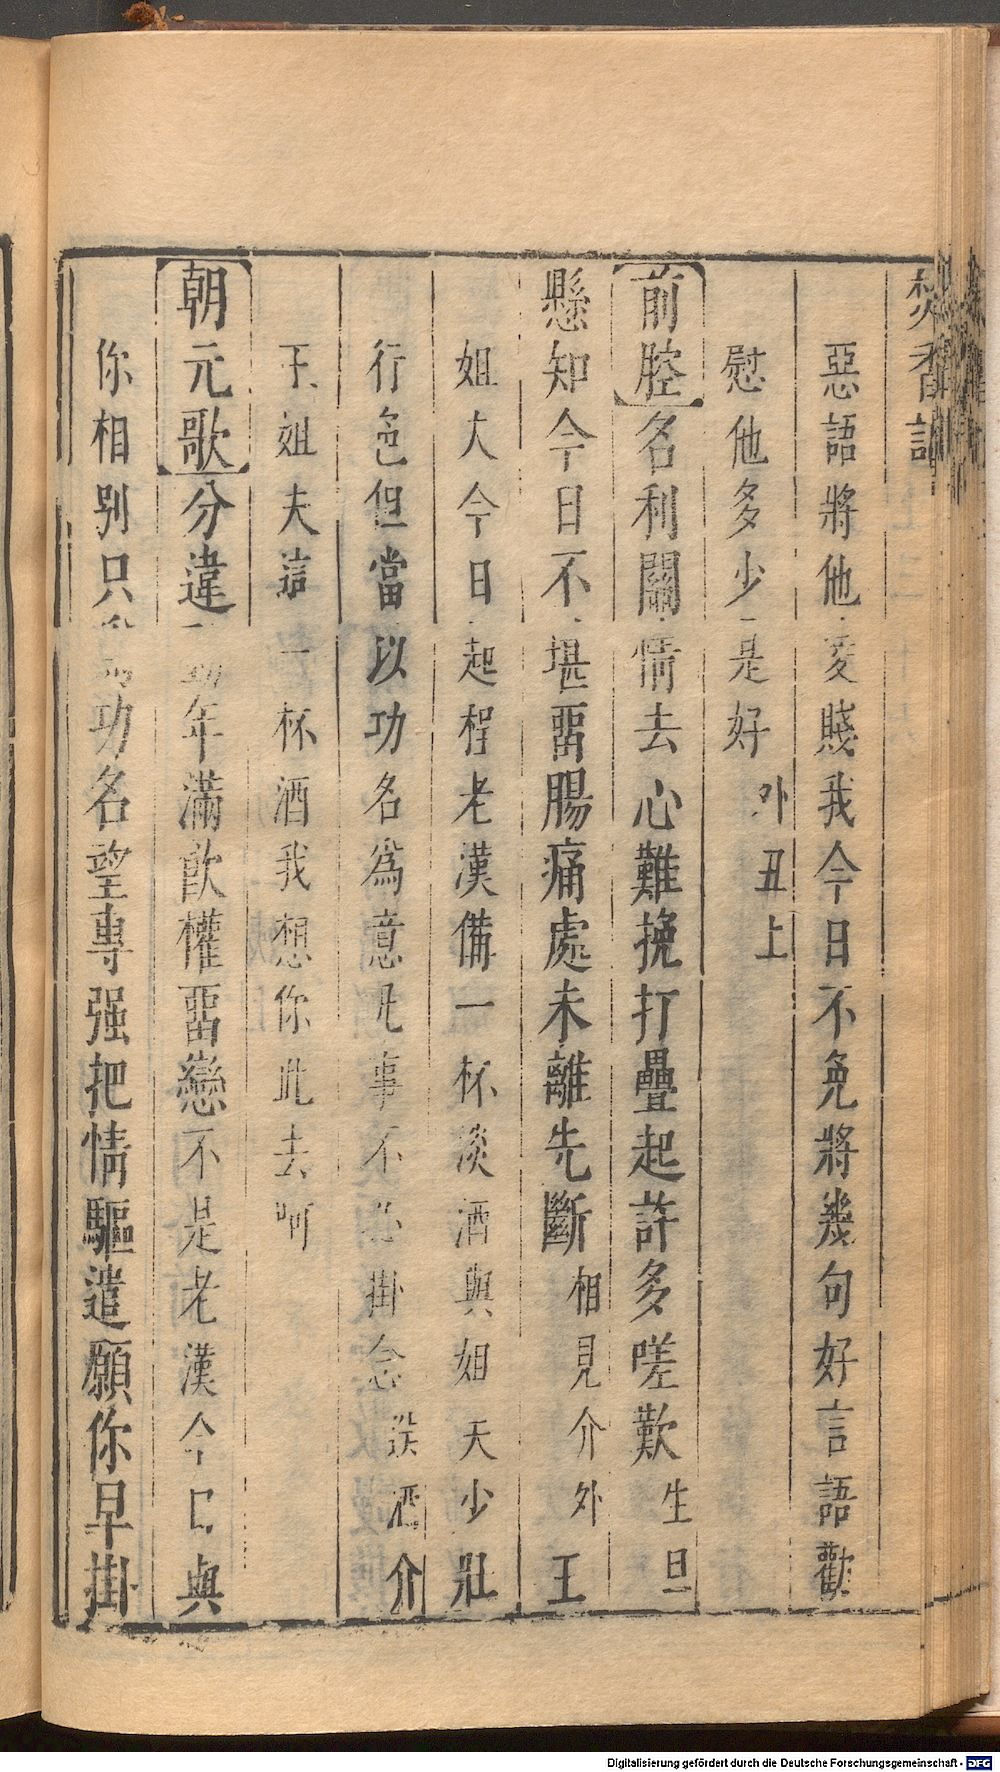 焚香記
惡語將他變賤我今日不免將幾句好言語勸
慰他多少是好外丑上
前腔名利關情去心難挽打疊起許多嗟歎生旦
懸知今日不堪畱腸痛處未離先斷相見介外王
姐夫今日起程老漢備一杯淡酒與姐夫少壯
行色但當以功名爲意凡事不必掛念送酒介
王姐夫這一杯酒我想你此去呵
朝元歌分違年滿飲權畱戀不是老漢今日與
你相別只爲功名望專强把情驅遣願你早掛
Digitalisierung gefördert durch die Deutsche Forschungsgemeinschaft - DFG